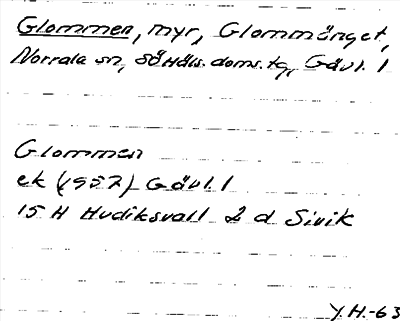 Glommen, myr, Glommänget,
Norrala sn, SöHäls. doms. tg, Gävl. l
Glommen
ek (1957) Gävl. l
15 H Hudiksvall 2 d Sivik
Y.H.-63